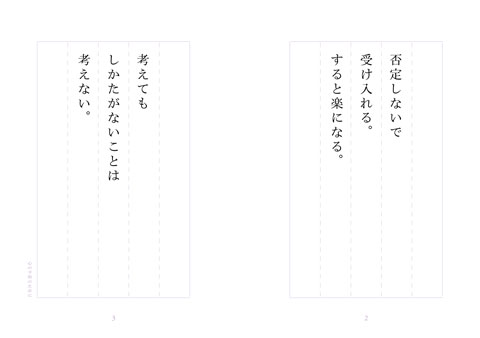 否定しないで
受け入れる。
すると楽になる。
2
考えても
しかたがないことは
考えない。
3